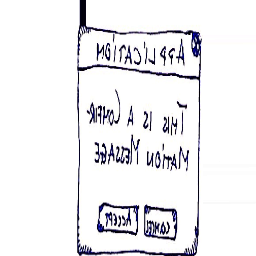 APPLICATION
THIS IS A CONFIR-
MATION MESSAGE
CANCEL ACCEPT